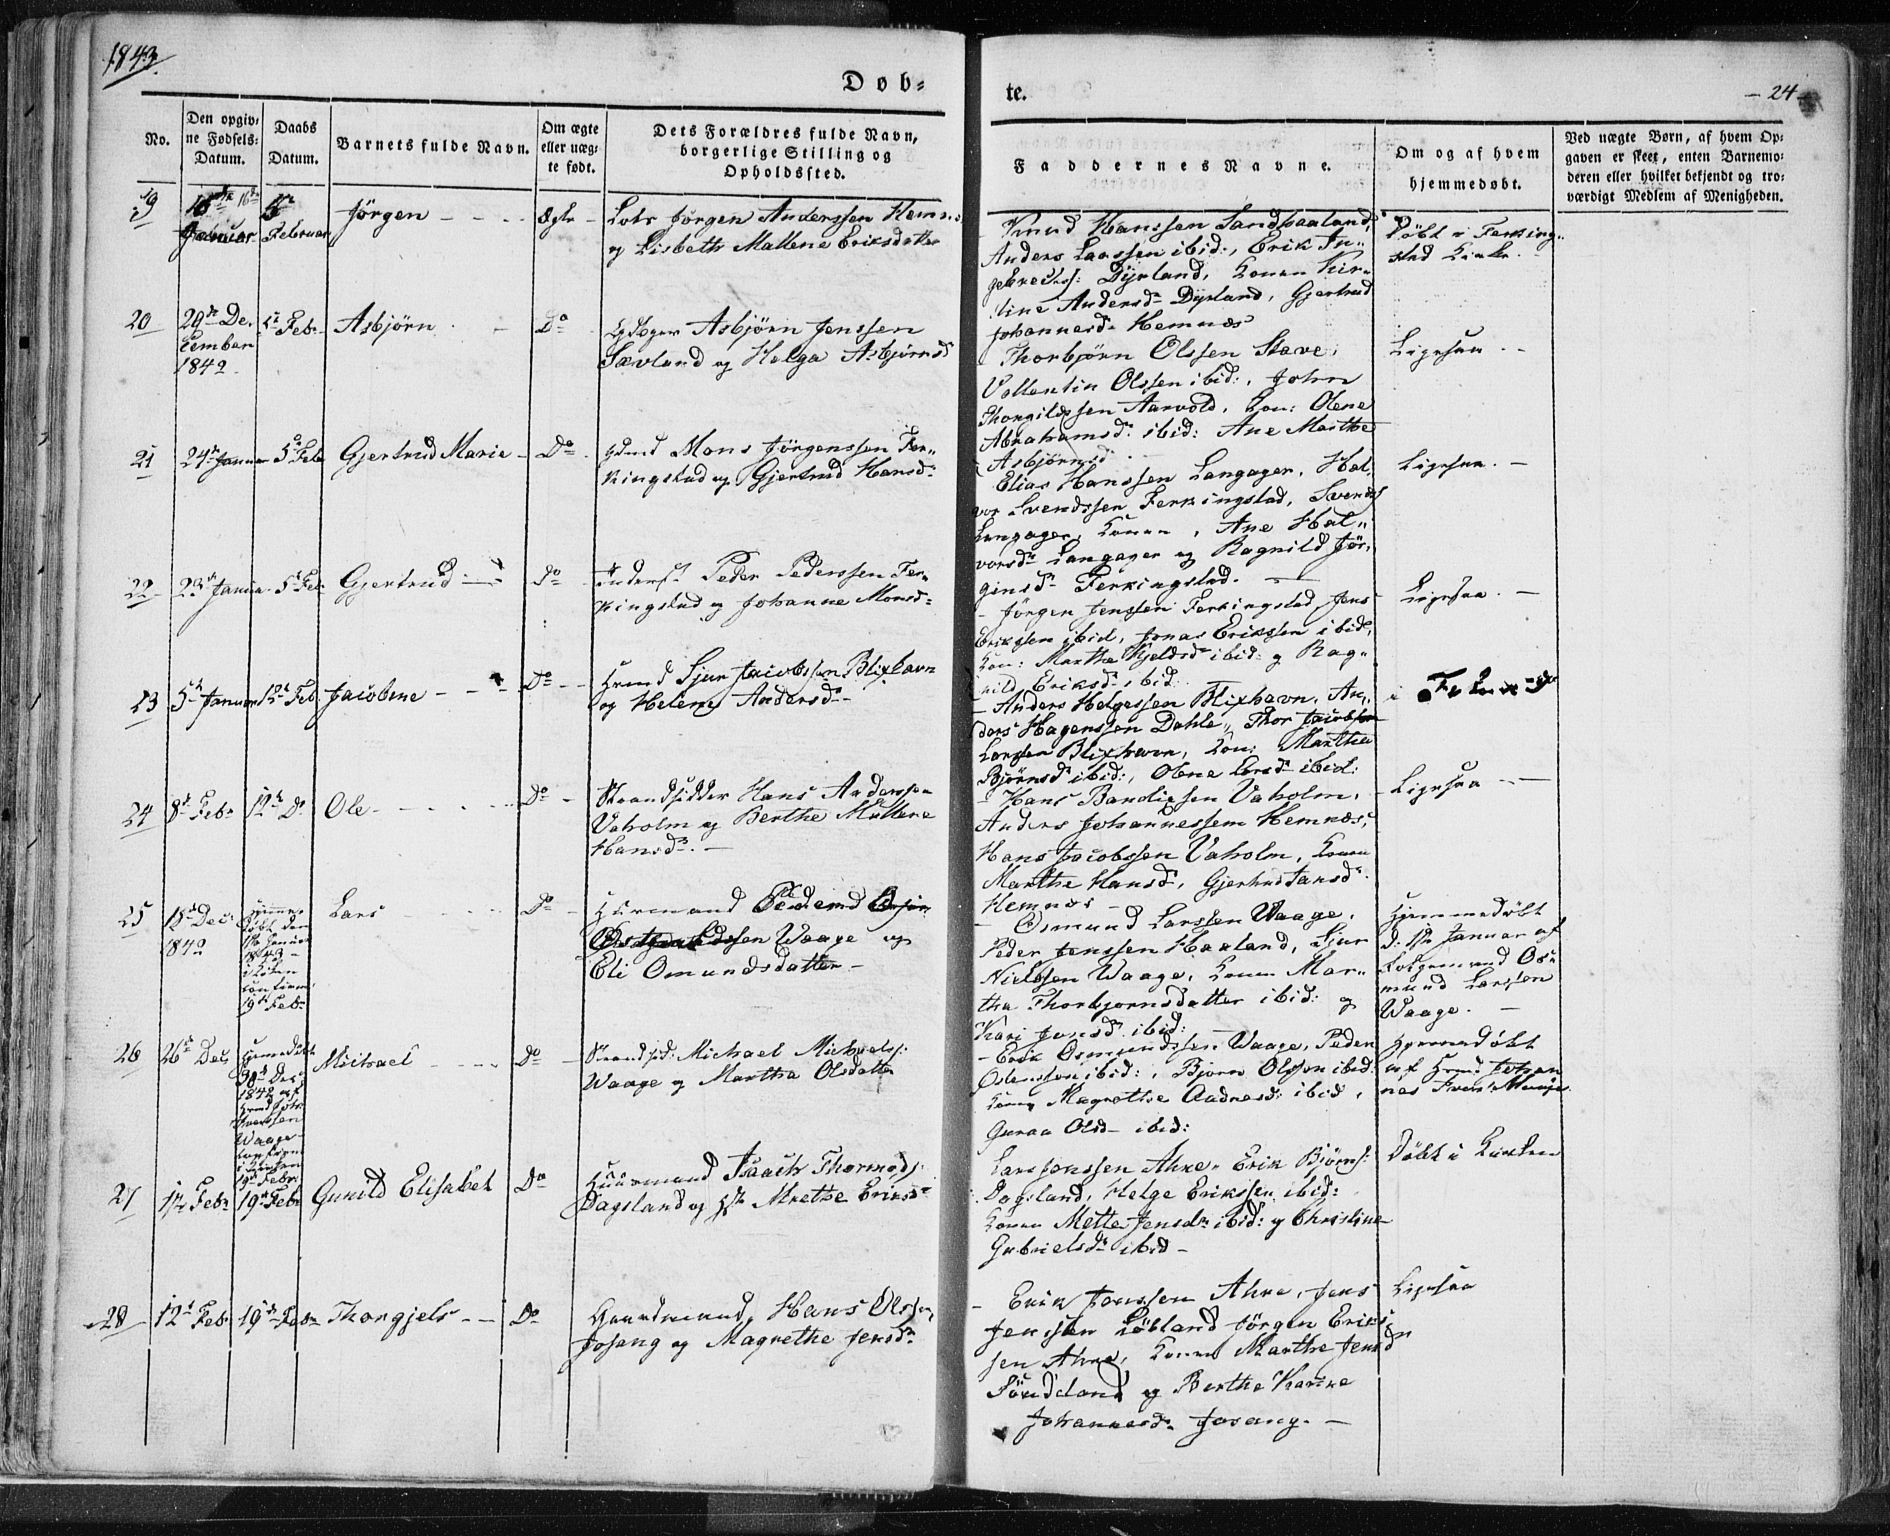 1843.
Døb-
te.
- 24 -
No.
Den opgiv-
ne Fødsels-
Datum.
Daabs
Datum.
Barnets fulde Navn.
Om ægte
eller uæg-
te født.
Dets Forældres fulde Navn,
borgerlige Stilling og
Opholdssted.
Faddernes Navne.
Om og af hvem
hjemmedøbt.
Ved uægte Børn, af hvem Op-
gaven er skeet, enten Barnemo-
deren eller hvilket bekjendt og tro-
værdigt Medlem af Menigheden.
19
16de
Januar
5te
Februar
Jörgen
Ægte
Lods Jörgen Anderssen Hemnæs
og Lisbeth Mallene Eriksdatter
Knud Hanssen Sandhaaland,
Anders Larssen ibid:, Erik In-
gebretss: Dyrland, Konen Kir-
stine Andersdr Dyrland, Gjertrud
Johannesdr Hemnæs
Döbt i Ferking-
stad Kirke.
20
29de De-
cember
1842.
5te Febr
Asbjörn
Do
Asbjörn Jenssen
Sævland og Helga Asbjörnsdr
Thorbjörn Olssen Stave,
Vallentin Olssen ibid:, John
Thorgildssen Aarvold, Kon: Olene
Abrahamsdr ibid: Ane Marthe
Asbjörnsdr
Ligesaa
21
24de Januar
5te Feb
Gjertrud Marie
Do
Gaardmd Mons Jörgenssen Fer-
kingstad og Gjertrud Hansdr
Elias Hanssen Langager, Hal-
vor Svendssen Ferkingstad, Svend
Langager, Konen, Ane Hal-
vorsdr Langager og Ragnild Jör-
gensdr Ferkingstad.
Ligesaa.
22
23de Januar
5te Feb
Gjertrud
Do
Inderst Peder Pederssen Fer-
kingstad og Johanne Monsdr
Jörgen Jenssen Ferkingstad, Jens
Erikssen ibid, Jonas Erikssen ibid,
Kon: Marthe Kjeldsdr ibid: og Rag-
nild Eriksdr ibid.
Ligesaa.
23
5te Januar
12te Feb
Jacobine
Do
Hrmd Sjur Jacobssen Blixhavn
og Helene Andersdr
Anders Helgessen Blixhavn, An-
ders Hagenssen Dahle, Thor Jacobsen
Larssen Blixhavn, Kon: Marthe
Björnsdr ibid:, Olene Larsdr ibid:
i
24
8de Febr
12te Do
Ole
Do
Strandsidder Hans Anderssen
Vaholm og Berthe Mallene
Hansdr.
Hans Bendixsen Vaholm,
Anders Johannessen Hemnæs,
Hans Jacobssen Vaholm, Konen
Marthe Hansdr, Gjertrud Jansdr
Hemnæs
Ligesaa
25
15de Dec:
1842
Hjemme-
döbt den
1ste Januar
1843
i Kirken
confirm:
19de Febr
Lars
Do
Huusmand
Waage og
Eli Omundsdatter
Osmund Larssen Waage,
Peder Jenssen Haaland, Sjur
Nielssen Waage, Konen Mar-
tha Thorbjornsdatter ibid: og
Kari Jonsd. ibid:
Hjemmedöbt
d: 1ste Januar af
Osmund Larssen
Waage.
26
26de Dec
Hjemmedöbt
30te Dec
1842 af
Waage
i Kirken
19de Febr
Michael
Do
Strandsid: Michael Michaels:
Waage og Martha Olsdatter
Erik Osmundssen Waage, Peder
Ostenssøn ibid:, Bjorn Olssøn ibid:
Konen Magrethe Aadnesd: ibid,
Guraa Olsd ibid:
Hjemmedöbt
af Hrmd Johan-
nes
27
1ste Febr
19de Febr
Gunild Elisabet
Do
Huusmand Isaach Thormods:
Dagsland og Hst Mrethe Eriksdr
Lars Jonssen Ahre, Erik Bjørns:
Dagsland, Helge Erikssen ibid:
Konen Mette Jensdr ibid: og Christine
Gabrielsdr ibid
Döbt i Kirken
28
12te Feb
19de Febr
Thorgjels
Do
Gaardmand Hans Olssen
Josang og Magrethe Jensdr
Erik Jonssen Ahre, Jens
Jenssen Jörgen Eriks-
sen Ahre, Konen Marthe Jensd
og Berthe Karine
Johannesdr Josang.
Ligesaa